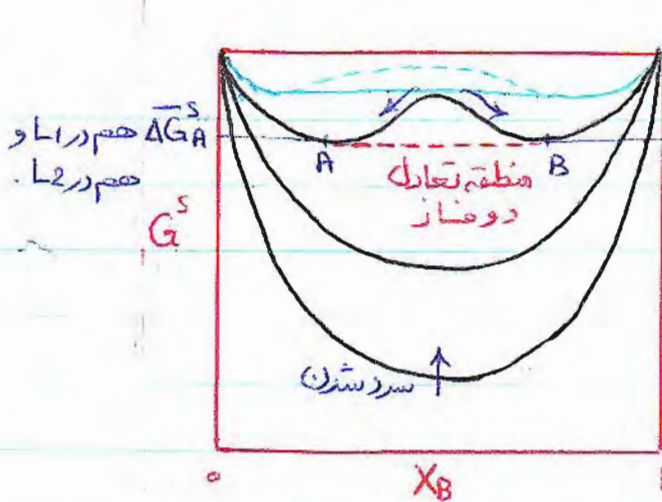 ΔG̅ˢA هم در L1 و
هم در L2.
Gˢ
A
B
منطقه تعادل
دو فاز
سرد شدن
0
X_B